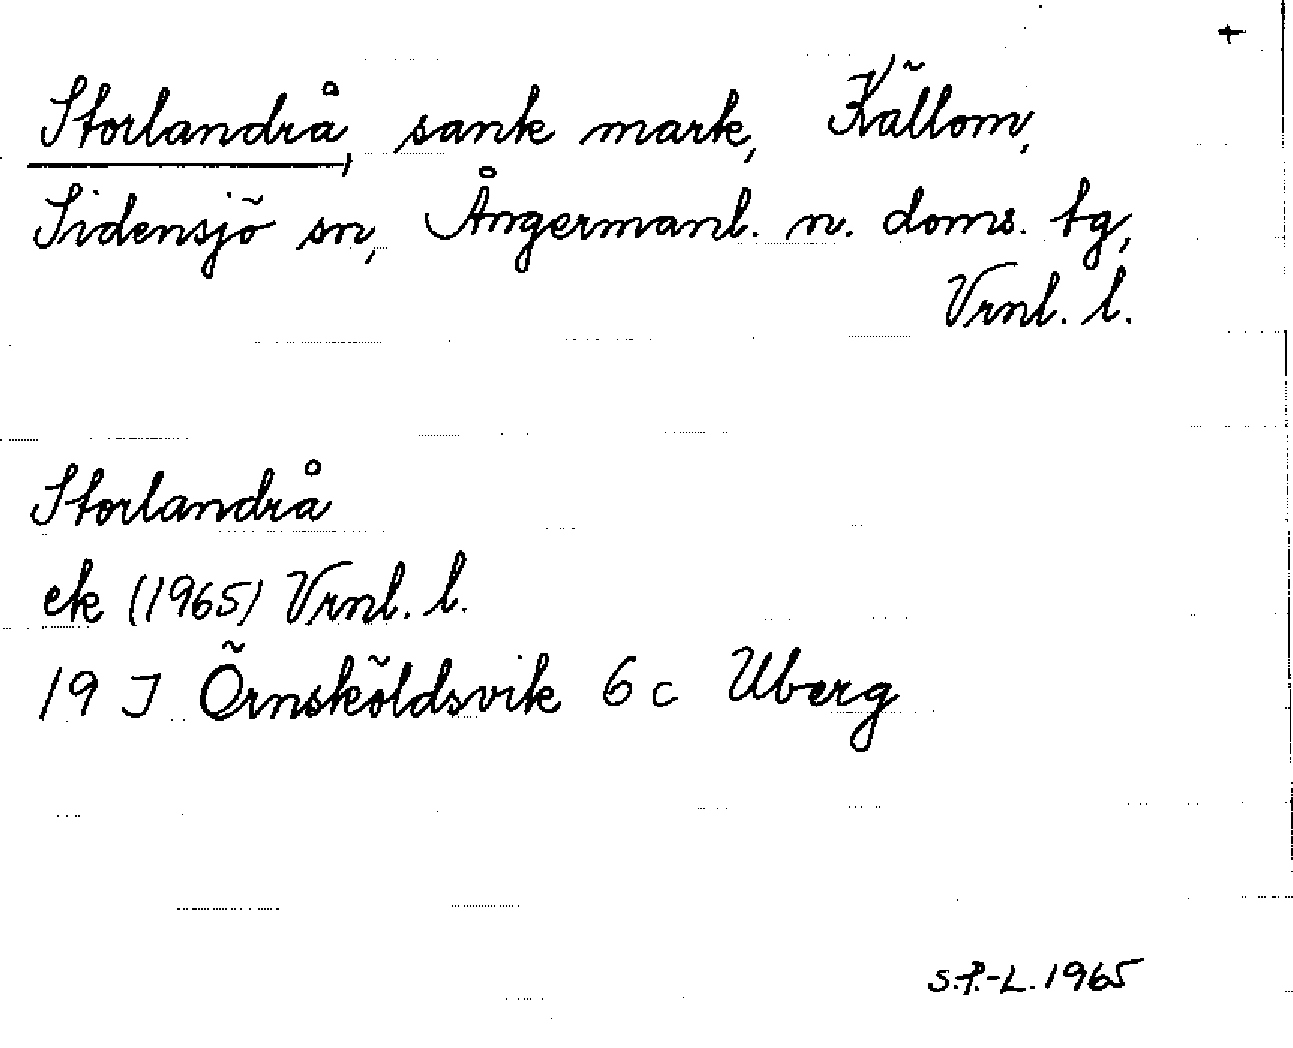 +
Storlandrå, sank mark, Källom,
Sidensjö sn, Ångermanl. n. doms. tg,
Vrnl. l.
Storlandrå
ek (1965) Vrnl. l.
19 J Örnsköldsvik 6 c Uberg
S.P.-L. 1965